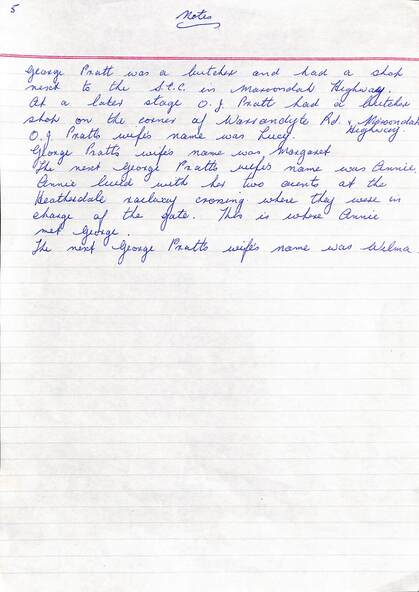 5
Notes
George Pratt was a butcher and had a shop
next to the S.E.C. in Maroondah Highway.
At a later stage O.J Pratt had a butcher
shop on the corner of Warrandyte Rd. & Maroondah
Highway.
O.J Pratts wife's name was Lucy
George Pratts wife's name was Margaret
The next George Pratts wife's name was Annie.
Annie lived with her two aunts at the
Heatherdale railway crossing where they were in
charge of the gate. This is where Annie
met George.
The next George Pratts wife's name was Welma.